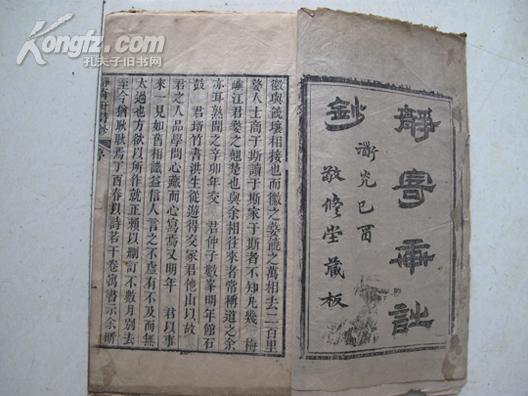 Kongfz.com
孔夫子旧书网
靜寄軒詩
鈔
道光己酉
敬修堂藏板
徽與饒壤相接也而徽之婺饒之萬相去二百里
婺人士商于斯讀于斯家于斯者不知凡幾 梅
江君婺之翹楚也與余相往來者常稱道之余
亦耳熟聞之辛卯年交 君仲子數峯明年館石
鼓 君培竹書洪生從遊得交家君他山以故
君之人品學問心藏而心寫焉又明年 君以事
來一見如舊相識益信人言之不虛有不及而無
太過也方欲以所作就正賴以刪訂不數月別去
至今猶耿耿焉丁酉春以詩若干卷寓書示余